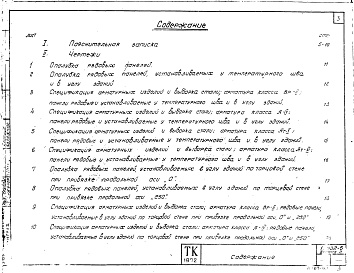 3
Содержание
лист
стр.
I. Пояснительная записка 5-10
II. Чертежи
1 Опалубка рядовых панелей. 11
2 Опалубка рядовых панелей, устанавливаемых у температурного шва
и в углу здания 12
3 Спецификация арматурных изделий и выборка стали; арматура класса
панели рядовые и устанавливаемые у температурного шва и в углу здания. 13
4 Спецификация арматурных изделий и выборка стали; арматура класса
панели рядовые и устанавливаемые у температурного шва и в углу здания. 14
5 Спецификация арматурных изделий и выборка стали; арматура класса
панели рядовые и устанавливаемые у температурного шва и в углу здания 15
6 Спецификация арматурных изделий и выборка стали; арматура класса
панели рядовые и устанавливаемые у температурного шва и в углу здания. 16
7 Опалубка рядовых панелей, устанавливаемых в углу здания по торцовой стене
при привязке продольной оси „0".
8 Опалубка рядовых панелей, устанавливаемых в углу здания по торцовой стене
при привязке продольной оси „250"
9 Спецификация арматурных изделий и выборка стали; арматура класса рядовые панели,
устанавливаемые в углу здания по торцовой стене при привязке продольной оси „0" и „250"
10 Спецификация арматурных изделий и выборка стали; арматура класса рядовые панели,
устанавливаемые в углу здания по торцовой стене при привязке продольной оси „0" и „250"
ТК
1972
Содержание